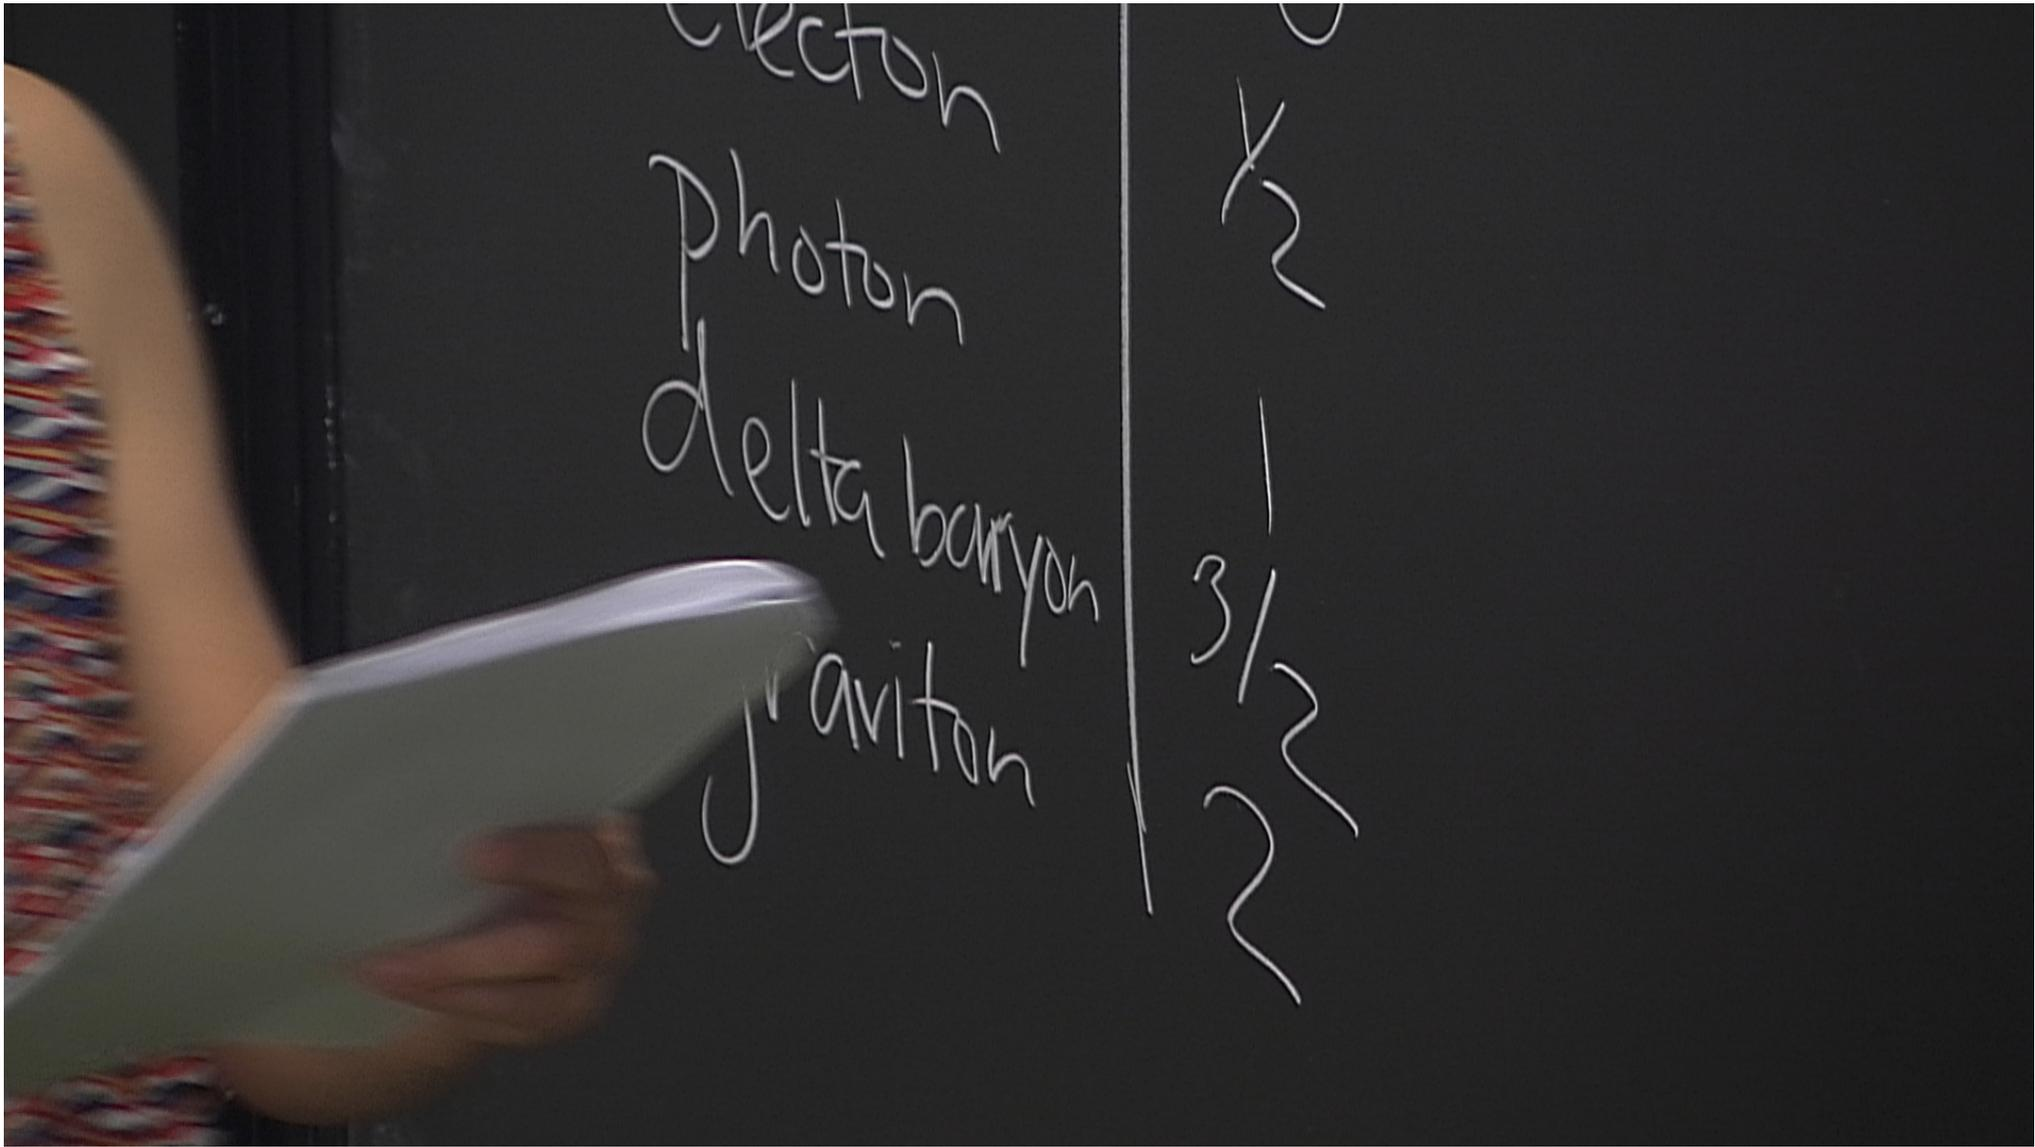 electon 1/2
photon 1
delta baryon 3/2
graviton 2